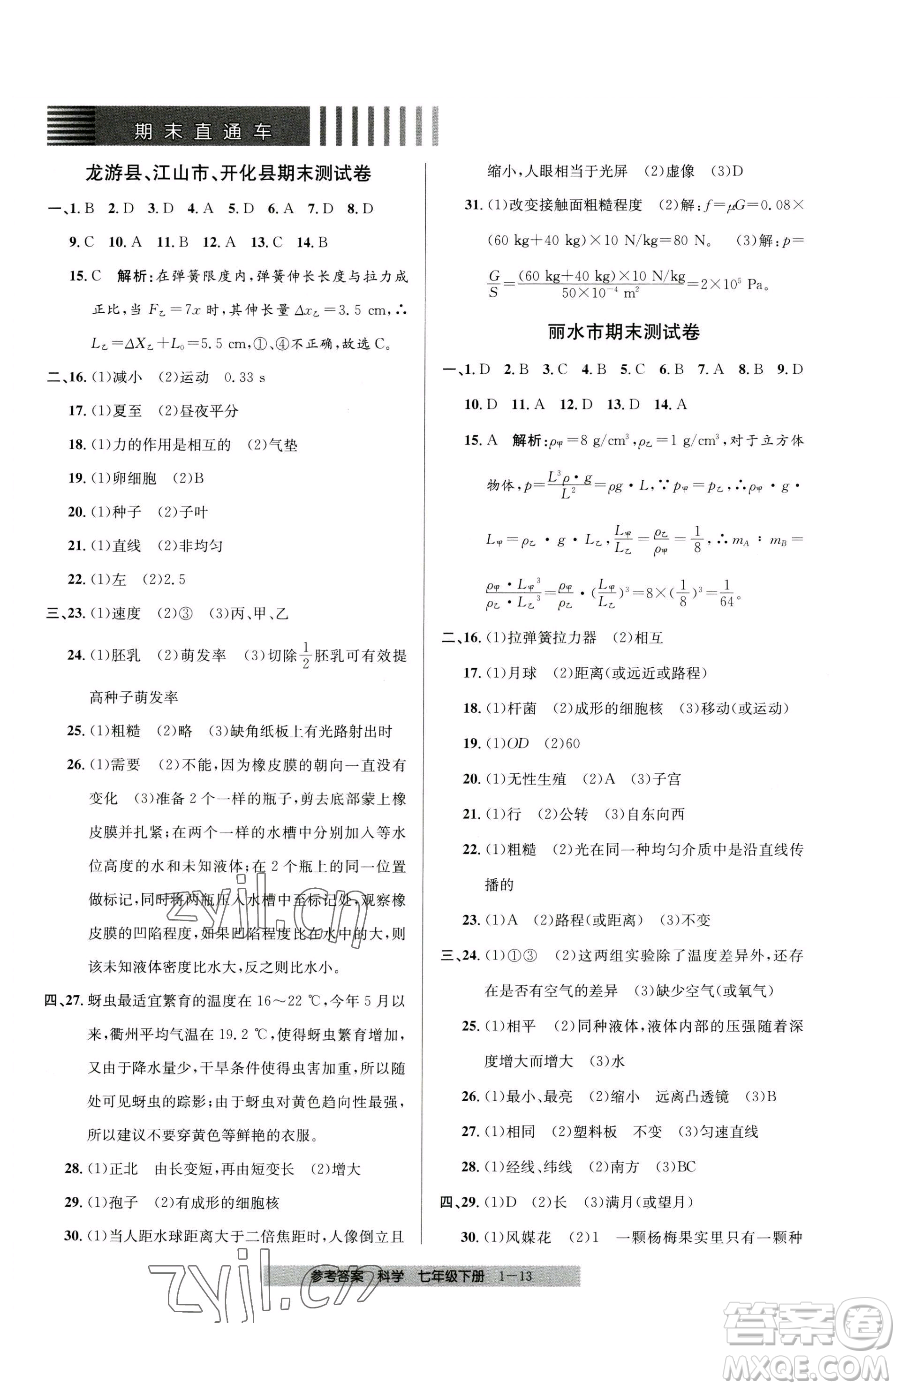 期末直通车
龙游县、江山市、开化县期末测试卷
一、1. B 2. D 3. D 4. A 5. D 6. D 7. D 8. D
9. C 10. A 11. A 12. A 13. C 14. B
15. C 解析:在弹簧限度内,弹簧伸长长度与拉力成
正比,当 F乙=7x 时,其伸长量 Δx乙=3.5 cm,∴
L乙=ΔX乙+L₀=5.5 cm,①、④不正确,故选 C。
二、16. (1)减小 (2)运动 0.33 s
17. (1)夏至 (2)昼夜平分
18. (1)力的作用是相互的 (2)气垫
19. (1)卵细胞 (2)B
20. (1)种子 (2)子叶
21. (1)直线 (2)非均匀
22. (1)左 (2)2.5
三、23. (1)速度 (2)③ (3)丙、甲、乙
24. (1)胚乳 (2)萌发率 (3)切除1/2胚乳可有效提
高种子萌发率
25. (1)粗糙 (2)略 (3)缺角纸板上有光路射出时
26. (1)需要 (2)不能,因为橡皮膜的朝向一直没有
变化 (3)准备 2 个一样的瓶子,剪去底部蒙上橡
皮膜并扎紧;在两个一样的水槽中分别加入等水
位高度的水和未知液体;在 2 个瓶上的同一位置
做标记,同时将两瓶压入水槽中标记处,观察橡
皮膜的凹陷程度,如果凹陷程度比在水中的大,则
该未知液体密度比水大,反之则小。
四、27. 蚜虫最适宜繁育的温度在 16~22 ℃,今年 5 月以
来,衢州平均气温在 19.2 ℃,使得蚜虫繁育增加,
又由于降水量少,干旱条件使得虫害加重,所以随
处可见蚜虫的踪影;由于蚜虫对黄色趋向性最强,
所以建议不要穿黄色等鲜艳的衣服。
28. (1)正北 由长变短,再由短变长 (2)增大
29. (1)孢子 (2)有成形的细胞核
30. (1)当人距水球距离大于二倍焦距时,人像倒立且
缩小,人眼相当于光屏 (2)虚像 (3)大
31. (1)改变接触面粗糙程度 (2)解:f=μG=0.08×
(60 kg+40 kg)×10 N/kg=80 N。 (3)解:p=
G/S=(60 kg+40 kg)×10 N/kg/50×10⁻⁴ m²=2×10⁵ Pa。
丽水市期末测试卷
一、1. D 2. B 3. C 4. B 5. D 6. C 7. A 8. B 9. D
10. D 11. A 12. D 13. D 14. A
15. A 解析:ρ甲=8 g/cm³,ρ乙=1 g/cm³,对于立方体
物体,p=L³ρ·g/L²=ρg·L,∵p甲=p乙,∴ρ甲·g·
L甲=ρ乙·g·L乙,L甲/L乙=ρ乙/ρ甲=1/8,∴mA∶mB=
ρ甲·L甲³/ρ乙·L乙³=ρ甲/ρ乙·(L甲/L乙)³=8×(1/8)³=1/64。
二、16. (1)拉弹簧拉力器 (2)相互
17. (1)月球 (2)距离(或远近或路程)
18. (1)杆菌 (2)成形的细胞核 (3)移动(或运动)
19. (1)OD (2)60
20. (1)无性生殖 (2)A (3)子宫
21. (1)行 (2)公转 (3)自东向西
22. (1)粗糙 (2)光在同一种均匀介质中是沿直线传
播的
23. (1)A (2)路程(或距离) (3)不变
三、24. (1)①③ (2)这两组实验除了温度差异外,还
存在是否有空气的差异 (3)缺少空气(或氧气)
25. (1)相平 (2)同种液体,液体内部的压强随着深
度增大而增大 (3)水
26. (1)最小、最亮 (2)缩小 远离凸透镜 (3)B
27. (1)相同 (2)塑料板 不变 (3)匀速直线
28. (1)经线、纬线 (2)南方 (3)BC
四、29. (1)D (2)长 (3)满月(或望月)
30. (1)风媒花 (2)1 一颗杨梅果实里只有一颗种
参考答案 科学 七年级下册 1-13
zyjl.cn
zyjl.cn
答案圈
MXQE.COM